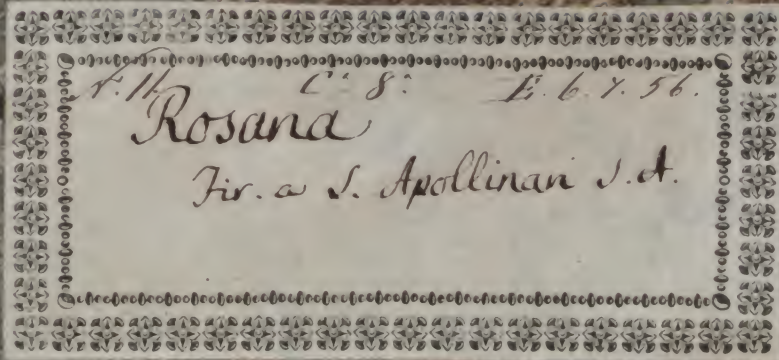 N. 11. C.a 8.a E. 6. 7. 56.
Rosana
Fir. a S. Apollinari S. A.